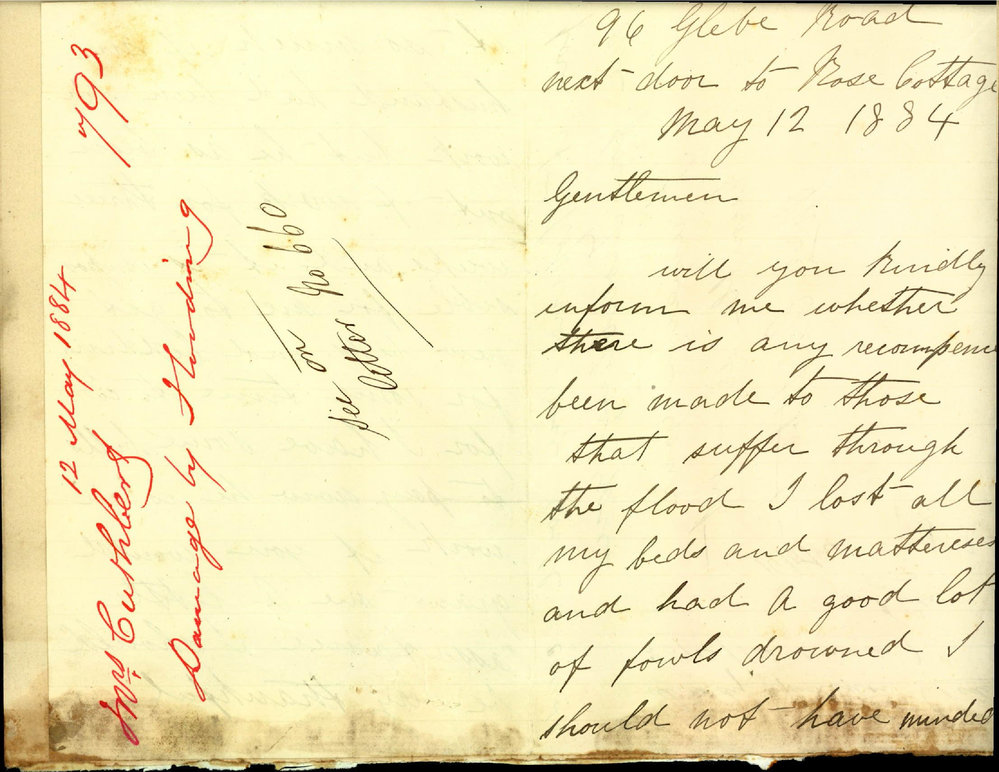 793
12 May 1884
Mrs Cuthbert
Damage by Flooding
see on No 660
Letter
96 Glebe Road
next door to Rose Cottage
May 12 1884
Gentlemen
will you Kindly
inform me whether
there is any recompence
been made to those
that suffer through
the flood I lost all
my beds and mattereses
and had a good lot
of fowls drowned I
should not have minded